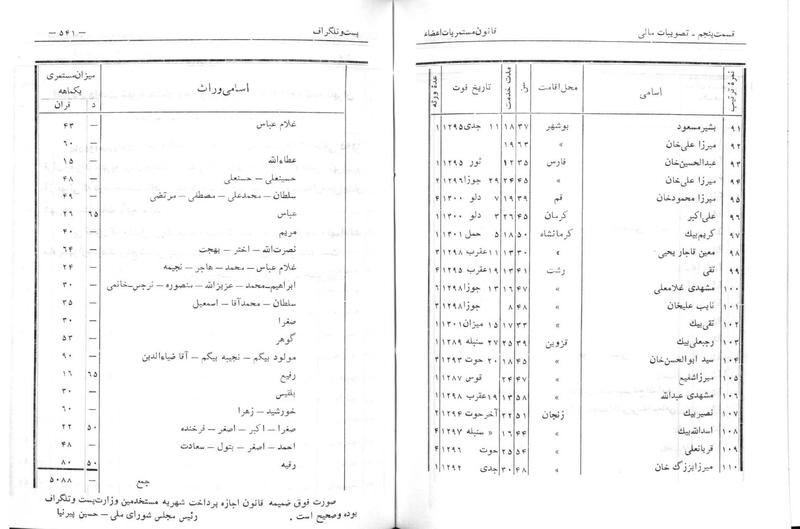 قسمت پنجم ـ تصویبات مالی
قانون مستمریات اعضاء
نمرهٔ ترتیب اسامی محل اقامت سن مدت خدمت تاریخ فوت عدهٔ ورثه
۹۱ بشیر مسعود بوشهر ۳۷ ۱۸ ۱۱ جدی ۱۲۹۵ ۱
۹۲ میرزا علی خان » ۶۳ ۱۹
۹۳ عبدالحسین خان فارس ۳۵ ۱۲ ثور ۱۲۹۵ ۱
۹۴ میرزا علی خان » ۴۵ ۲۴ ۲۹ جوزا ۱۲۹۶ ۲
۹۵ میرزا محمودخان قم ۳۹ ۱۹ ۷ دلو ۱۳۰۰ ۴
۹۶ علی اکبر کرمان ۴۵ ۲۶ ۳ دلو ۱۳۰۰ ۱
۹۷ کریم بیك کرمانشاه ۵۰ ۱۸ ۵ حمل ۱۳۰۱ ۱
۹۸ معین قاجار یحیی » ۳۰ ۱۳ ۱۱ عقرب ۱۲۹۸ ۳
۹۹ تقی رشت ۴۱ ۱۳ ۱۹ عقرب ۱۲۹۵ ۴
۱۰۰ مشهدی غلامعلی » ۴۷ ۱۶ ۱۳ جوزا ۱۲۹۸ ۶
۱۰۱ نایب علیخان » ۴۸ ۸ جوزا ۱۲۹۸ ۳
۱۰۲ تقی بیك » ۳۳ ۱۷ ۱۵ میزان ۱۳۰۱ ۱
۱۰۳ رجبعلی بیك قزوین ۳۹ ۲۵ ۲۷ سنبله ۱۲۸۹ ۱
۱۰۴ سید ابوالحسن خان » ۴۵ ۱۸ ۲۰ حوت ۱۲۹۳ ۳
۱۰۵ میرزا شفیع » ۴۷ ۲۴ قوس ۱۲۸۷ ۱
۱۰۶ مشهدی عبدالله » ۵۸ ۱۳ ۱۹ عقرب ۱۲۹۸ ۱
۱۰۷ نصیر بیك زنجان ۵۱ ۲۲ آخر حوت ۱۲۹۴ ۲
۱۰۸ اسدالله بیك » ۴۴ ۱۶ » سنبله ۱۲۹۷ ۴
۱۰۹ قربانعلی » ۵۴ ۲۵ حوت ۱۲۹۶ ۴
۱۱۰ میرزا بزرگ خان » ۴۸ ۳۰ جدی ۱۲۹۲ ۱
پست و تلگراف
— ۵۴۱ —
اسامی وراث میزان مستمری یکماهه
د قران
غلام عباس — ۴۳
— ۶۰
عطاءالله — ۱۵
حسینعلی — حسنعلی — ۴۸
سلطان — محمدعلی — مصطفی — مرتضی — ۴۹
عباس ۶۵ ۲۶
مریم — ۴۰
نصرت الله — اختر — بهجت — ۶۴
غلام عباس — محمد — هاجر — نجیمه — ۲۴
ابراهیم — محمد — عزیزالله — منصوره — نرجس خانمی — ۳۰
سلطان — محمد آقا — اسمعیل — ۳۵
صغرا — ۳۰
گوهر — ۳۰
مولود بیگم — نجیبه بیگم — آقا ضیاءالدین — ۹۰
رفیع ۶۵ ۱۶
بلقیس — ۳۰
خورشید — زهرا — ۶۰
صغرا — اکبر — اصغر — فرخنده ۵۰ ۲۲
احمد — اصغر — بتول — سعادت — ۴۸
رقیه ۵۰ ۸۰
جمع — ۵۰۸۸
صورت فوق ضمیمه قانون اجازه پرداخت شهریه مستخدمین وزارت پست و تلگراف
بوده و صحیح است . رئیس مجلس شورای ملی — حسین پیرنیا